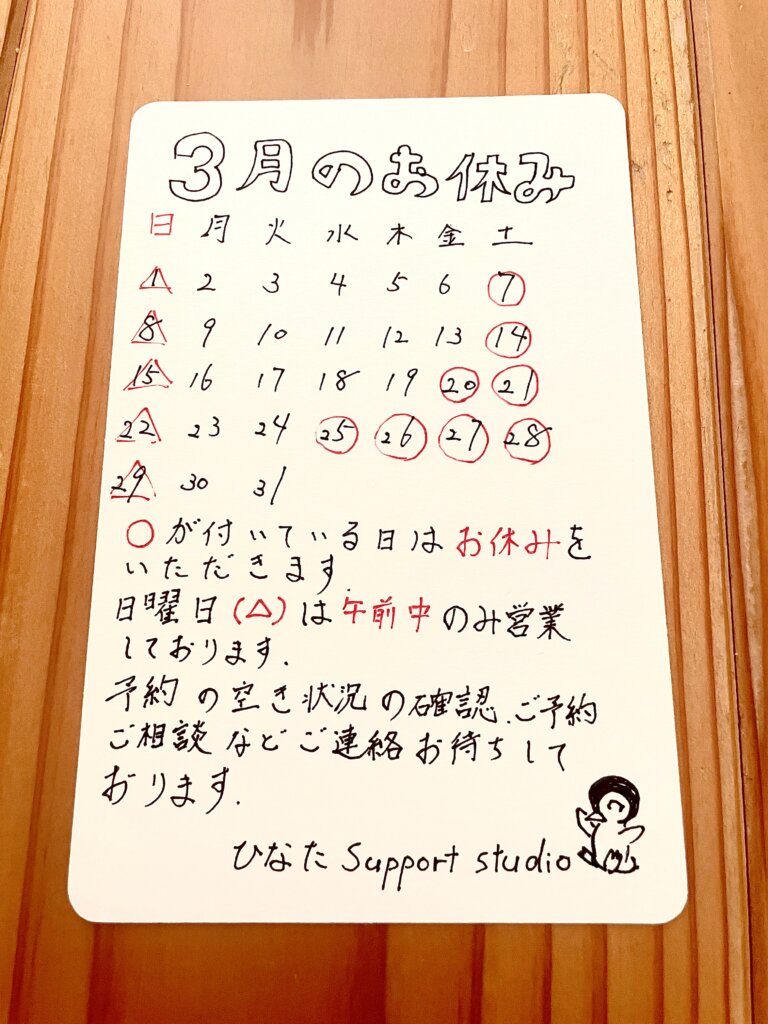 3月のお休み
日 月 火 水 木 金 土
1 2 3 4 5 6 7
8 9 10 11 12 13 14
15 16 17 18 19 20 21
22 23 24 25 26 27 28
29 30 31
○が付いている日はお休みを
いただきます.
日曜日(△)は午前中のみ営業
しております.
予約の空き状況の確認、ご予約
ご相談などご連絡お待ちして
おります.
ひなた Support studio